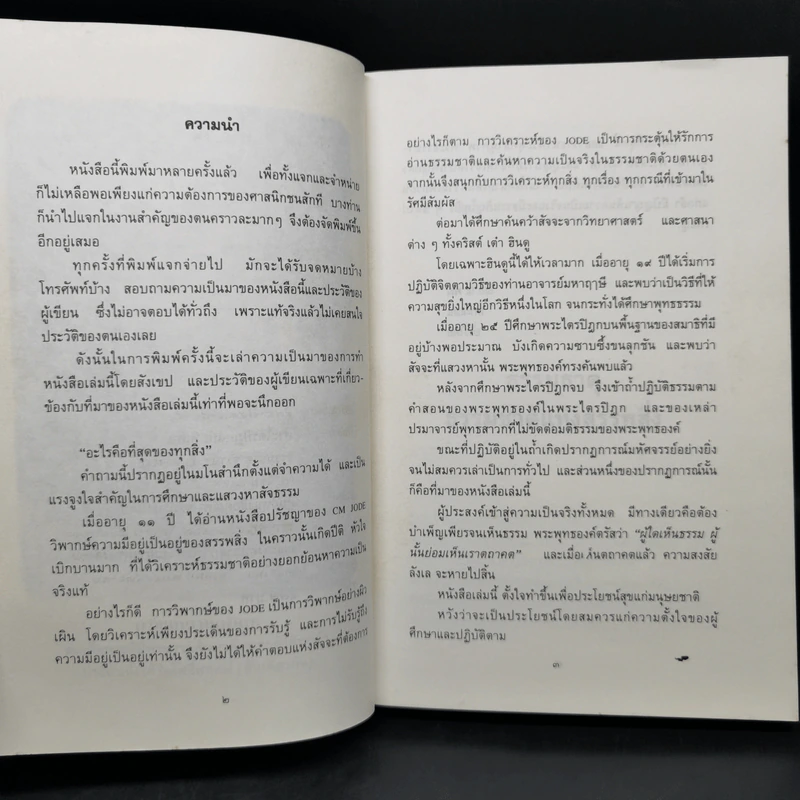 ความนำ
หนังสือนี้พิมพ์มาหลายครั้งแล้ว เพื่อทั้งแจกและจำหน่าย
ก็ไม่เหลือพอเพียงแก่ความต้องการของศาสนิกชนสักที บางท่าน
ก็นำไปแจกในงานสำคัญของตนคราวละมากๆ จึงต้องจัดพิมพ์ขึ้น
อีกอยู่เสมอ
ทุกครั้งที่พิมพ์แจกจ่ายไป มักจะได้รับจดหมายบ้าง
โทรศัพท์บ้าง สอบถามความเป็นมาของหนังสือนี้และประวัติของ
ผู้เขียน ซึ่งไม่อาจตอบได้ทั่วถึง เพราะแท้จริงแล้วไม่เคยสนใจ
ประวัติของตนเองเลย
ดังนั้นในการพิมพ์ครั้งนี้จะเล่าความเป็นมาของการทำ
หนังสือเล่มนี้โดยสังเขป และประวัติของผู้เขียนเฉพาะที่เกี่ยว-
ข้องกับที่มาของหนังสือเล่มนี้เท่าที่พอจะนึกออก
“อะไรคือที่สุดของทุกสิ่ง”
คำถามนี้ปรากฏอยู่ในมโนสำนึกตั้งแต่จำความได้ และเป็น
แรงจูงใจสำคัญในการศึกษาและแสวงหาสัจธรรม
เมื่ออายุ ๑๑ ปี ได้อ่านหนังสือปรัชญาของ CM JODE
วิพากษ์ความมีอยู่เป็นอยู่ของสรรพสิ่ง ในคราวนั้นเกิดปีติ หัวใจ
เบิกบานมาก ที่ได้วิเคราะห์ธรรมชาติอย่างยอกย้อนหาความเป็น
จริงแท้
อย่างไรก็ดี การวิพากษ์ของ JODE เป็นการวิพากษ์อย่างผิว
เผิน โดยวิเคราะห์เพียงประเด็นของการรับรู้ และการไม่รับรู้ถึง
ความมีอยู่เป็นอยู่เท่านั้น จึงยังไม่ได้ให้คำตอบแห่งสัจจะที่ต้องการ
๒
อย่างไรก็ตาม การวิเคราะห์ของ JODE เป็นการกระตุ้นให้รักการ
อ่านธรรมชาติและค้นหาความเป็นจริงในธรรมชาติด้วยตนเอง
จากนั้นจึงสนุกกับการวิเคราะห์ทุกสิ่ง ทุกเรื่อง ทุกกรณีที่เข้ามาใน
รัศมีสัมผัส
ต่อมาได้ศึกษาค้นคว้าสัจจะจากวิทยาศาสตร์ และศาสนา
ต่าง ๆ ทั้งคริสต์ เต๋า ฮินดู
โดยเฉพาะฮินดูนี้ได้ให้เวลามาก เมื่ออายุ ๑๙ ปีได้เริ่มการ
ปฏิบัติจิตตามวิธีของท่านอาจารย์มหาฤาษี และพบว่าเป็นวิธีที่ให้
ความสุขยิ่งใหญ่อีกวิธีหนึ่งในโลก จนกระทั่งได้ศึกษาพุทธธรรม
เมื่ออายุ ๒๕ ปีศึกษาพระไตรปิฎกบนพื้นฐานของสมาธิที่มี
อยู่บ้างพอประมาณ บังเกิดความซาบซึ้งขนลุกชัน และพบว่า
สัจจะที่แสวงหานั้น พระพุทธองค์ทรงค้นพบแล้ว
หลังจากศึกษาพระไตรปิฎกจบ จึงเข้าถ้ำปฏิบัติธรรมตาม
คำสอนของพระพุทธองค์ในพระไตรปิฎก และของเหล่า
ปรมาจารย์พุทธสาวกที่ไม่ขัดต่อมติธรรมของพระพุทธองค์
ขณะที่ปฏิบัติอยู่ในถ้ำเกิดปรากฏการณ์มหัศจรรย์อย่างยิ่ง
จนไม่สมควรเล่าเป็นการทั่วไป และส่วนหนึ่งของปรากฏการณ์นั้น
ก็คือที่มาของหนังสือเล่มนี้
ผู้ประสงค์เข้าสู่ความเป็นจริงทั้งหมด มีทางเดียวคือต้อง
บำเพ็ญเพียรจนเห็นธรรม พระพุทธองค์ตรัสว่า “ผู้ใดเห็นธรรม ผู้
นั้นย่อมเห็นเราตถาคต” และเมื่อเห็นตถาคตแล้ว ความสงสัย
ลังเล จะหายไปสิ้น
หนังสือเล่มนี้ ตั้งใจทำขึ้นเพื่อประโยชน์สุขแก่มนุษยชาติ
หวังว่าจะเป็นประโยชน์โดยสมควรแก่ความตั้งใจของผู้
ศึกษาและปฏิบัติตาม
๓